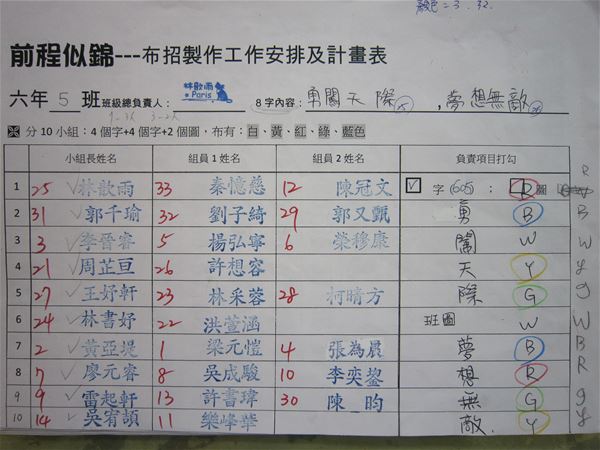 顏色=3.32.
前程似錦---布招製作工作安排及計畫表
六年 5 班 班級總負責人： 林歆雨 Paris 8字內容：勇闖天際 ，夢想無敵
※ 分 10 小組：4 個字+4 個字+2 個圖，布有：白、黃、紅、綠、藍色
小組長姓名 組員 1 姓名 組員 2 姓名 負責項目打勾
1 25 ✓林歆雨 33 秦憶慈 12 陳冠文 ☑ 字 (605) ： R 圖 R
2 31 ✓郭千瑜 32 劉子綺 29 郭又甄 勇 B B
3 3 ✓李晉睿 5 楊弘寧 6 榮穆康 闖 W W
4 21 ✓周芷亘 26 許想容 天 Y Y
5 27 ✓王妤軒 23 林采蓉 28 柯晴方 際 G g
6 24 ✓林書妤 22 洪萱涵 班圖 W W
7 2 ✓黃亞堤 1 梁元愷 4 張為晨 夢 B B
8 7 ✓廖元睿 8 吳成駿 10 李奕鋆 想 R R
9 9 ✓雷起軒 13 許書瑋 30 陳_昀 無 G g
10 14 ✓吳宥頡 11 樂峰華 敵 Y y